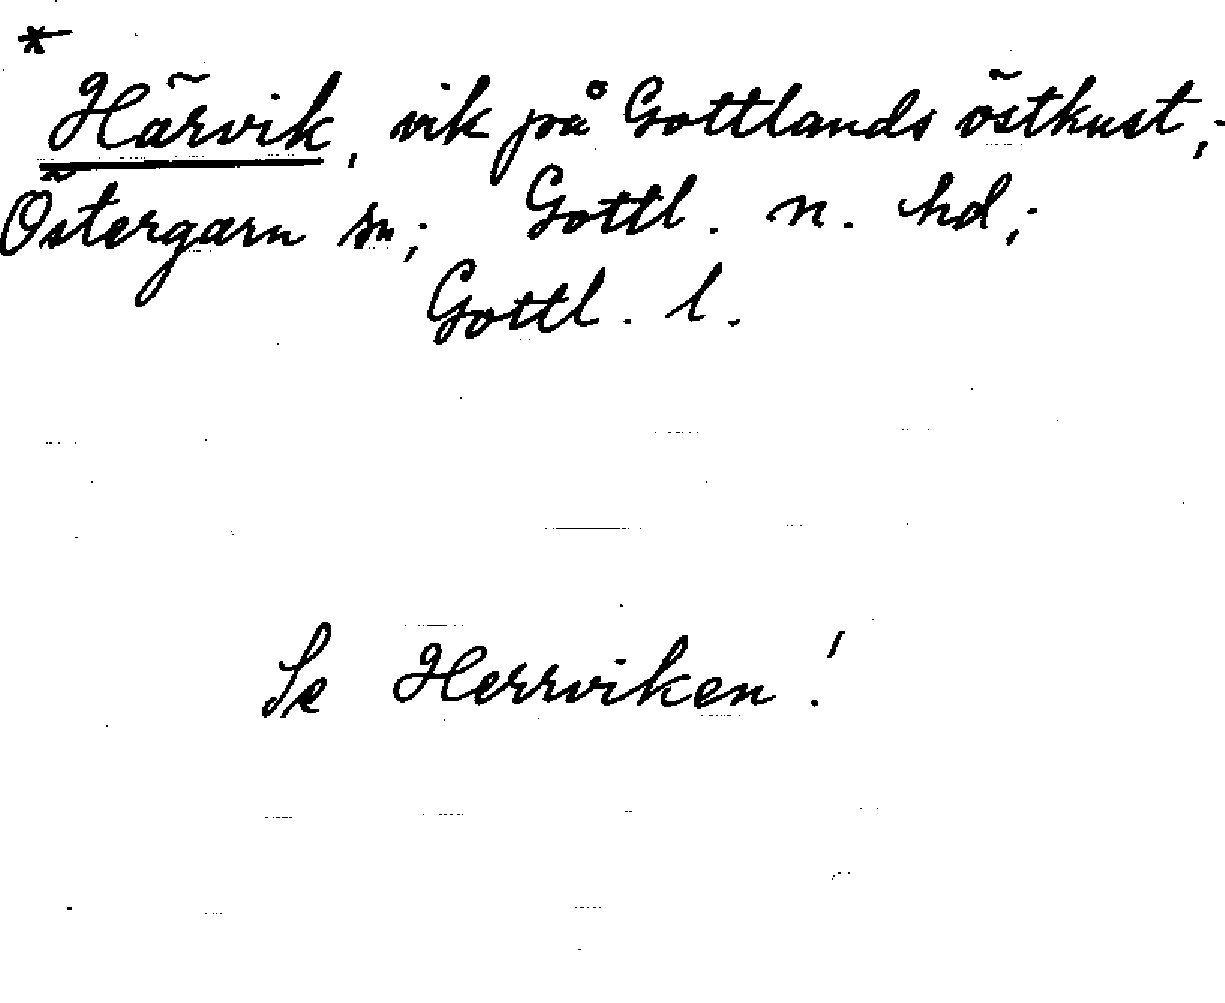 *
Härvik, vik på Gottlands östkust;
Östergarn sn; Gottl. n. hd;
Gottl. l.
Se Herrviken!